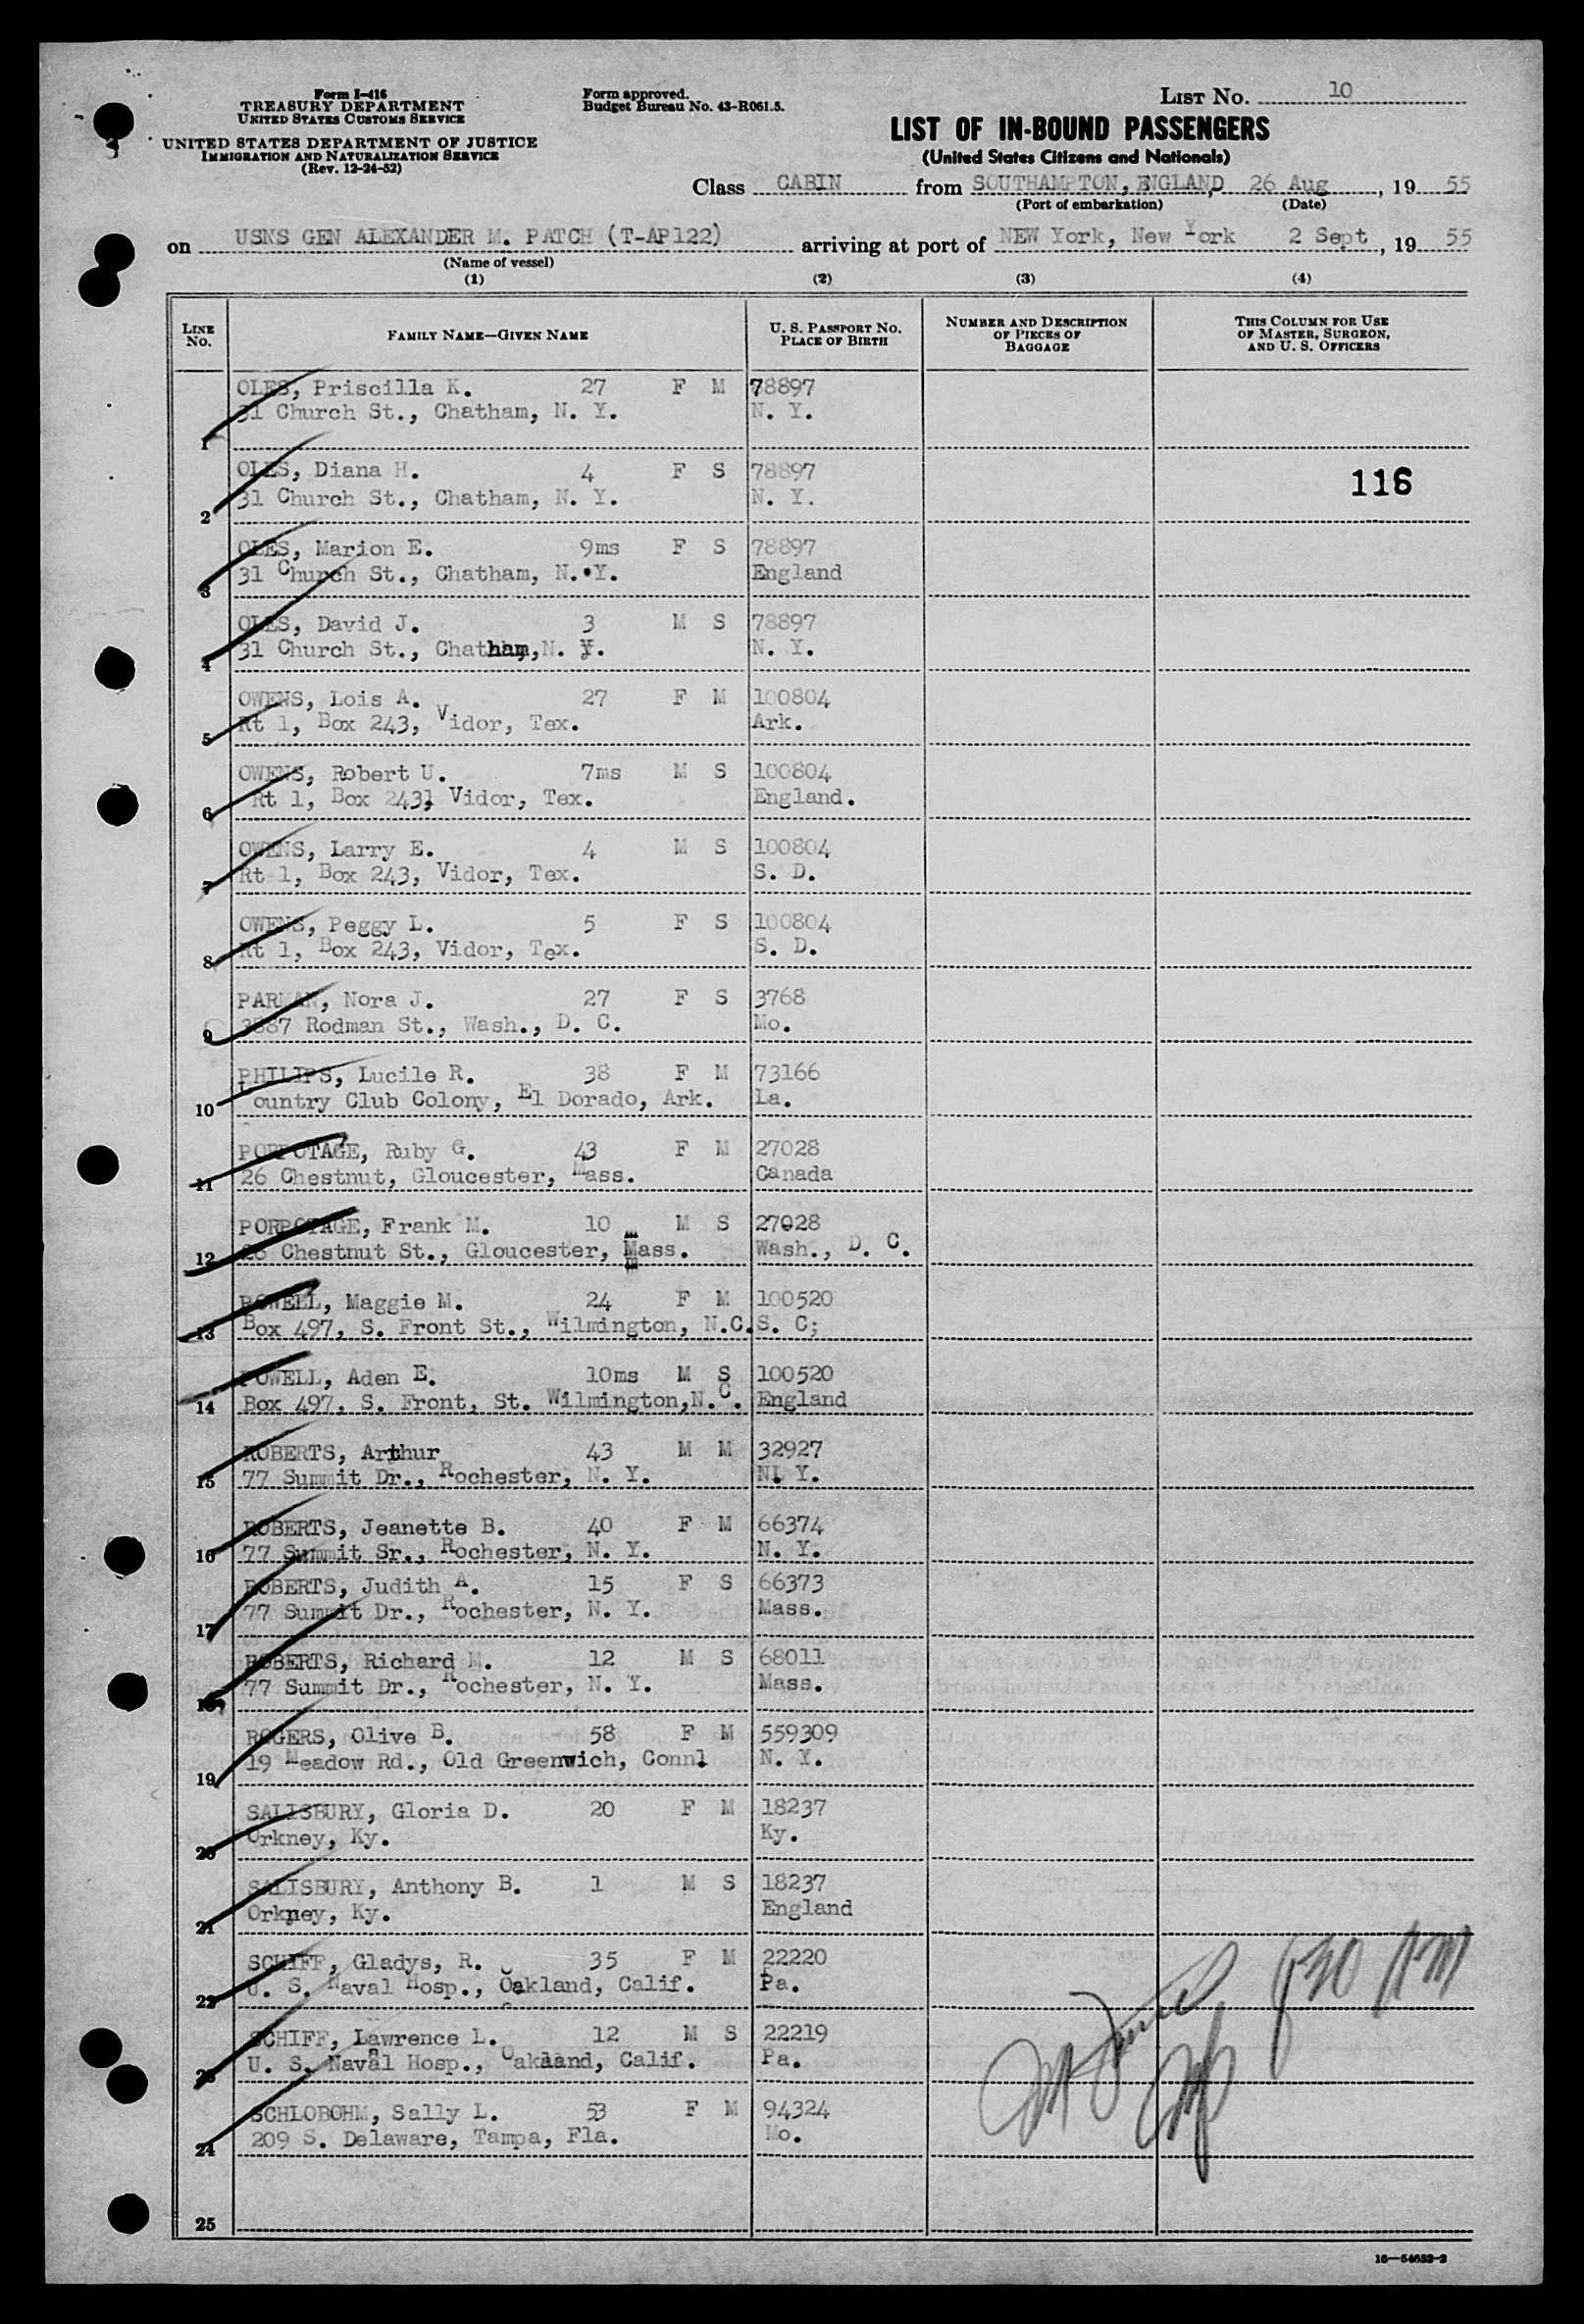 Form I-416
TREASURY DEPARTMENT
UNITED STATES CUSTOMS SERVICE
UNITED STATES DEPARTMENT OF JUSTICE
IMMIGRATION AND NATURALIZATION SERVICE
(Rev. 12-24-52)
Form approved.
Budget Bureau No. 43-R061.5.
LIST NO. 10
LIST OF IN-BOUND PASSENGERS
(United States Citizens and Nationals)
Class CABIN from SOUTHAMPTON, ENGLAND, 26 Aug, 19 55
(Port of embarkation) (Date)
on USNS GEN ALEXANDER M. PATCH (T-AP122) arriving at port of NEW York, New York 2 Sept, 19 55
(Name of vessel)
(1) (2) (3) (4)
LINE NO. FAMILY NAME—GIVEN NAME U. S. PASSPORT NO. PLACE OF BIRTH NUMBER AND DESCRIPTION OF PIECES OF BAGGAGE THIS COLUMN FOR USE OF MASTER, SURGEON, AND U. S. OFFICERS
OLES, Priscilla K. 27 F M 78897
1 31 Church St., Chatham, N. Y. N. Y.
OLES, Diana H. 4 F S 78897
116
2 31 Church St., Chatham, N. Y. N. Y.
OLES, Marion E. 9ms F S 78897
3 31 Church St., Chatham, N. Y. England
OLES, David J. 3 M S 78897
4 31 Church St., Chatham, N. Y. N. Y.
OWENS, Lois A. 27 F M 100804
5 Rt 1, Box 243, Vidor, Tex. Ark.
OWENS, Robert U. 7ms M S 100804
6 Rt 1, Box 243, Vidor, Tex. England.
OWENS, Larry E. 4 M S 100804
7 Rt 1, Box 243, Vidor, Tex. S. D.
OWENS, Peggy L. 5 F S 100804
8 Rt 1, Box 243, Vidor, Tex. S. D.
PARMAN, Nora J. 27 F S 3768
9 3887 Rodman St., Wash., D. C. Mo.
PHILIPS, Lucile R. 38 F M 73166
10 Country Club Colony, El Dorado, Ark. La.
PORPOTAGE, Ruby G. 43 F M 27028
11 26 Chestnut, Gloucester, Mass. Canada
PORPOTAGE, Frank M. 10 M S 27028
12 26 Chestnut St., Gloucester, Mass. Wash., D. C.
POWELL, Maggie M. 24 F M 100520
13 Box 497, S. Front St., Wilmington, N.C. S. C;
POWELL, Aden E. 10ms M S 100520
14 Box 497, S. Front, St. Wilmington,N.C. England
ROBERTS, Arthur 43 M M 32927
15 77 Summit Dr., Rochester, N. Y. N. Y.
ROBERTS, Jeanette B. 40 F M 66374
16 77 Summit Sr., Rochester, N. Y. N. Y.
ROBERTS, Judith A. 15 F S 66373
17 77 Summit Dr., Rochester, N. Y. Mass.
ROBERTS, Richard M. 12 M S 68011
18 77 Summit Dr., Rochester, N. Y. Mass.
ROGERS, Olive B. 58 F M 559309
19 19 Meadow Rd., Old Greenwich, Conn. N. Y.
SALISBURY, Gloria D. 20 F M 18237
20 Orkney, Ky. Ky.
SALISBURY, Anthony B. 1 M S 18237
21 Orkney, Ky. England
SCHIFF, Gladys, R. 35 F M 22220
22 U. S. Naval Hosp., Oakland, Calif. Pa.
SCHIFF, Lawrence L. 12 M S 22219
23 U. S. Naval Hosp., Oakland, Calif. Pa.
SCHLOBOHM, Sally L. 53 F M 94324
24 209 S. Delaware, Tampa, Fla. Mo.
25
16—54652-2